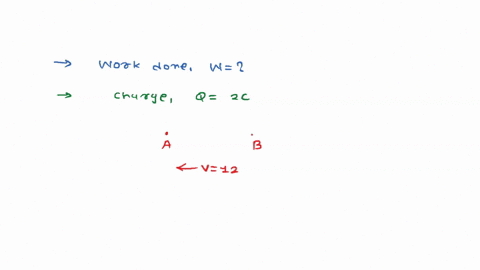 → Work done, W=?
→ charge, Q= 2C
A B
← V=12